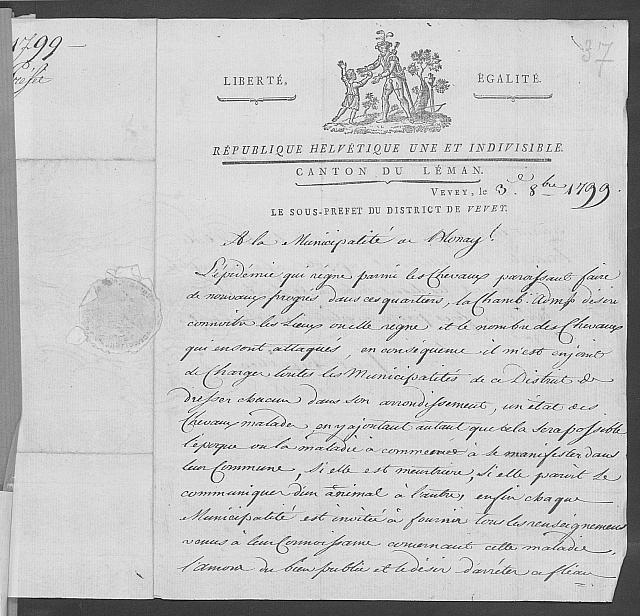 1799
37
LIBERTÉ,
ÉGALITÉ.
RÉPUBLIQUE HELVÉTIQUE UNE ET INDIVISIBLE.
CANTON DU LÉMAN.
VEVEY, le 3.e 8bre 1799.
LE SOUS-PREFET DU DISTRICT DE VEVEY.
A la Municipalité de Blonay!
L'épidémie qui règne parmi les Chevaux paroissant faire
de nouveaux progrès dans ces quartiers, la Chamb. Adm.ve désire
connoitre les Lieux ou elle règne et le nombre des Chevaux
qui en sont attaqués, en conséquence il m'est enjoint
de Charger toutes les Municipalités de ce District de
dresser chacune dans son arrondissement, un état des
Chevaux malades, en y ajoutant autant que cela sera possible
l'époque ou la maladie à commencé à se manifester dans
leur Commune, si elle est meurtrière, si elle paroit se
communiquer d'un animal à l'autre, enfin chaque
Municipalité est invitée à fournir tous les renseignemens
venus à leur Connoissance concernant cette maladie,
l'amour du bien public et le désir d'arrêter ce fléau